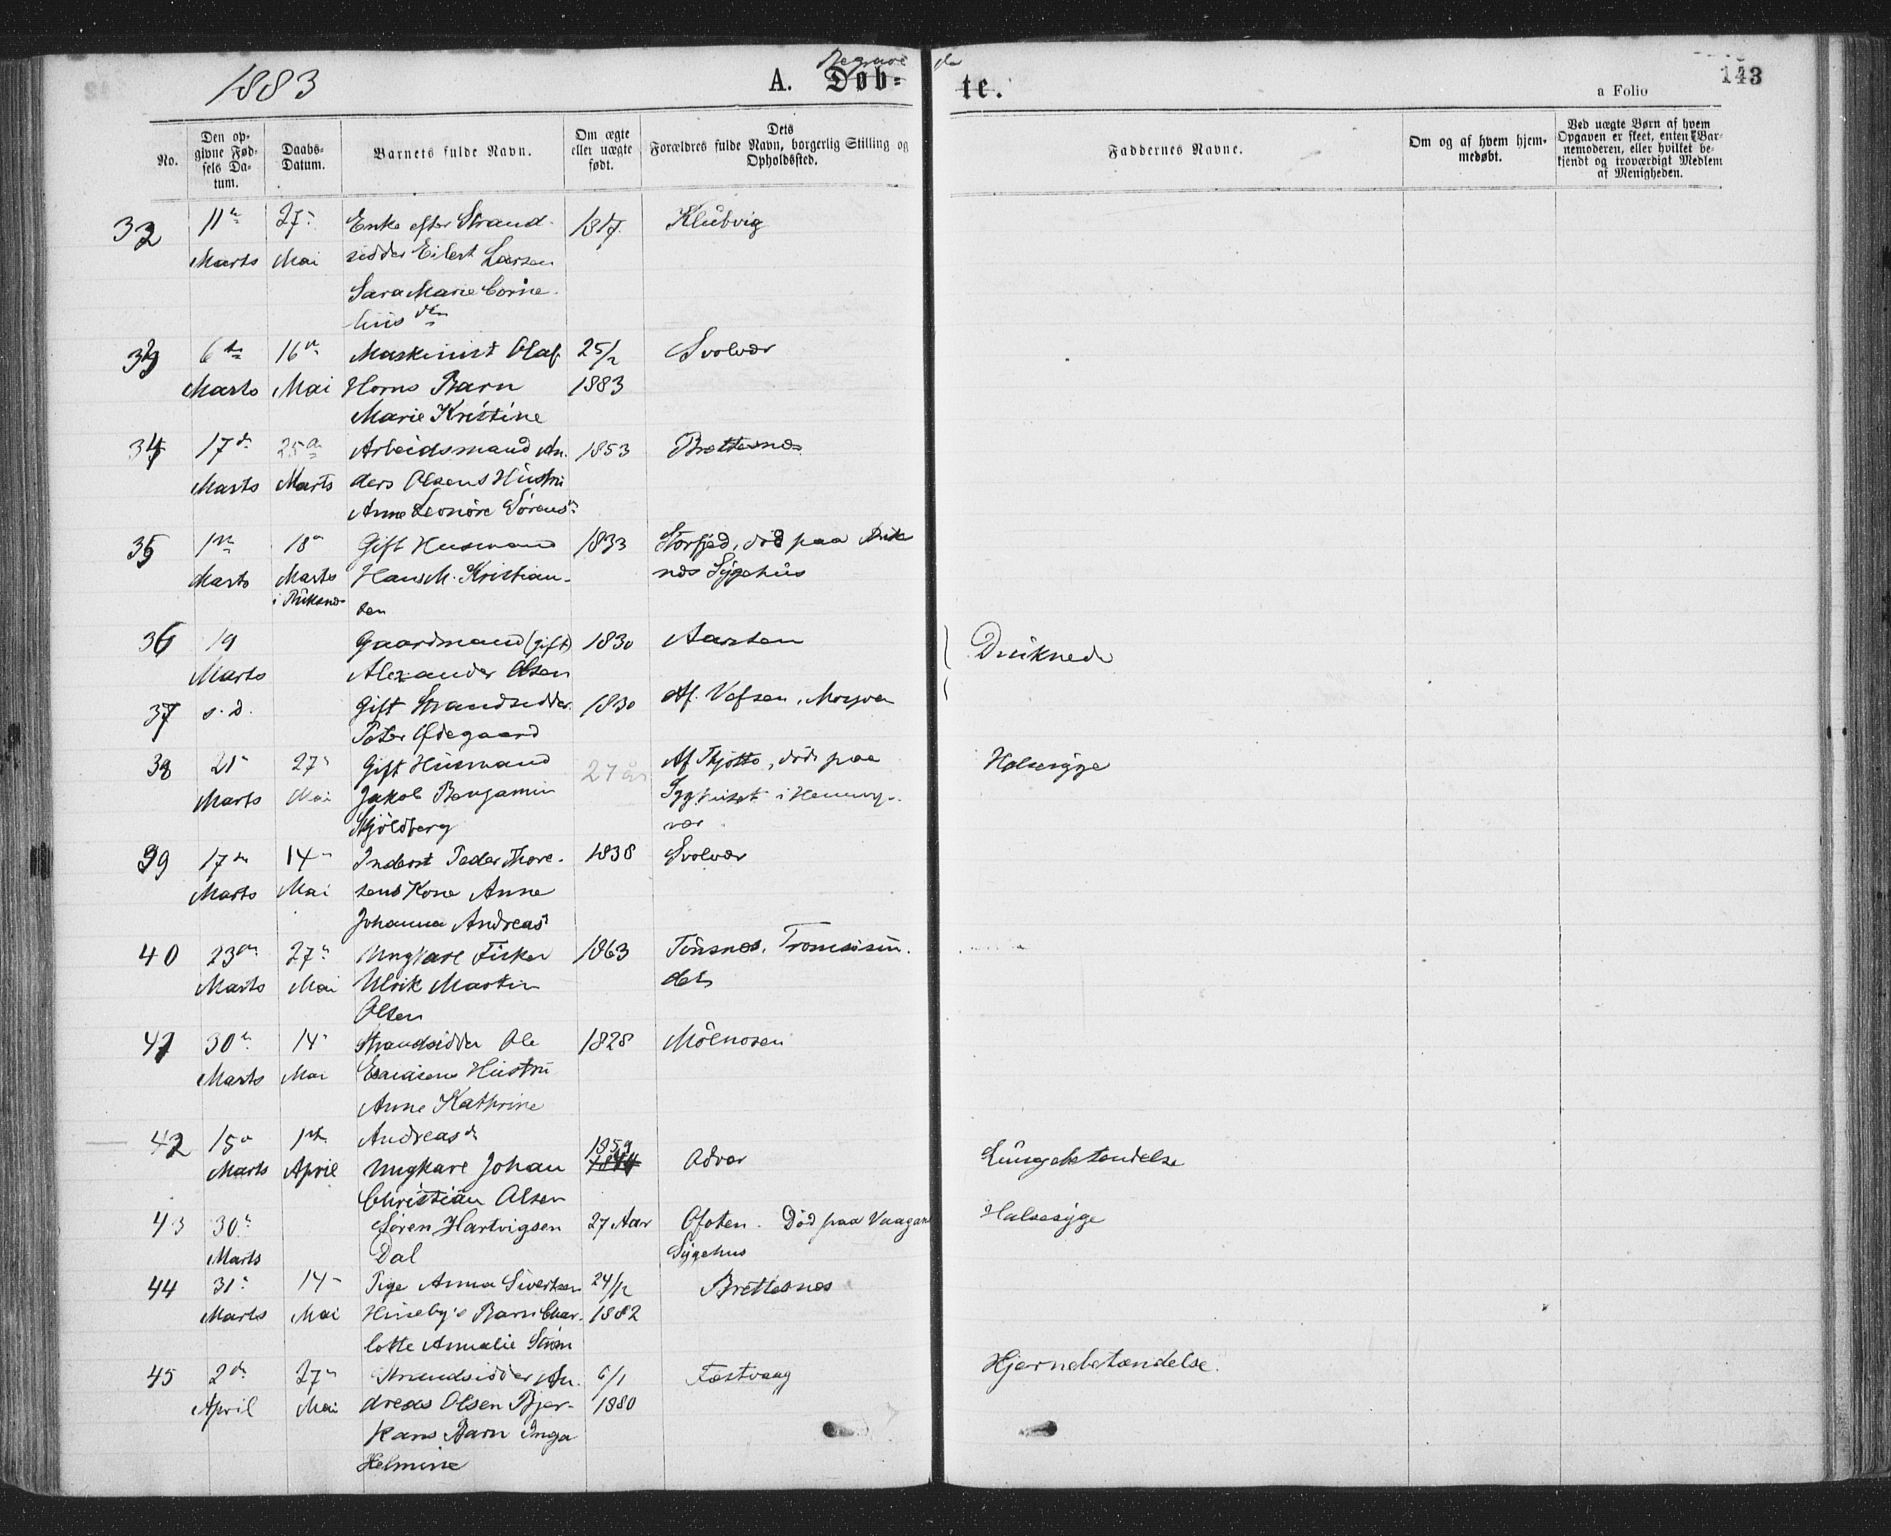 1883
Begrave
de
A. Døb=
te.
143
a Folio
No.
Den op-
givne Fød-
sels Da-
tum.
Daabs-
Datum.
Barnets fulde Navn.
Om ægte
eller uægte
født.
Dets
Forældres fulde Navn, borgerlig Stilling og
Opholdssted.
Faddernes Navne.
Om og af hvem hjem-
medøbt.
Ved uægte Børn af hvem
Opgaven er skeet, enten Bar-
nemoderen, eller hvilket be-
kjendt og troværdigt Medlem
af Menigheden.
32 11te 27de Enke efter Strand- 1817 Klubvig
Marts Mai sidder Eilert Larsen
Sara Marie Corne-
lius dtr
33 6te 16de Maskinist Olaf 25/2 Svolvær
Marts Mai Horns Barn 1883
Marie Kristine
34 17de 25de Arbeidsmand An- 1853 Brettesnes
Marts Marts ders Olsens Hustru
Anne Leonore Sørensd
35 1ste 18de Gift Husmand 1833 Storfjed, død paa
Marts Marts Hans M. Kristian- nes Sygehus
i
sen
36 19 Gaardmand (gift) 1830 Aarsten Druknede
Marts Alexander Olsen
37 s. d. Gift Strandsidder 1830 Af. Vefsen,
Peter Ødegaard
38 21de 27de Gift Husmand 27 år Af Tjøtto, død paa Halssyge
Marts Mai Jakob Benjamin Sygehuset i Henning-
Skjoldberg vær
39 17de 14de Inderst Peder Thore- 1838 Svolvær
Marts Mai sens Kone Anne
Johanna Andreasd
40 23de 27de Ungkarl Fisker 1863 Tønsnes, Tromsøsun-
Marts Mai Ulrik Martin det
Olsen
41 30te 14de Strandsidder Ole 1828 Mølnosen
Marts Mai Esaiasens Hustru
Anne Kathrine
Andreasd
42 15de 1ste Ungkarl Johan 1859 1844 Advær Lungebetændelse
Marts April Christian Olsen
43 30te Søren Hartvigsen 27 Aar Ofoten. Død paa Vaagan Halsesyge
Marts Dal Sygehus
44 31te 14de Pige Anna Sivertsen 24/12 Brettesnes
Marts Mai Barn Char- 1882
lotte Annalie Strøm
45 2den 27de Strandsidder An- 6/1 Festvaag Hjernebetændelse.
April Mai dreas Olsen Bjer- 1880
kans Barn Inga
Helmine